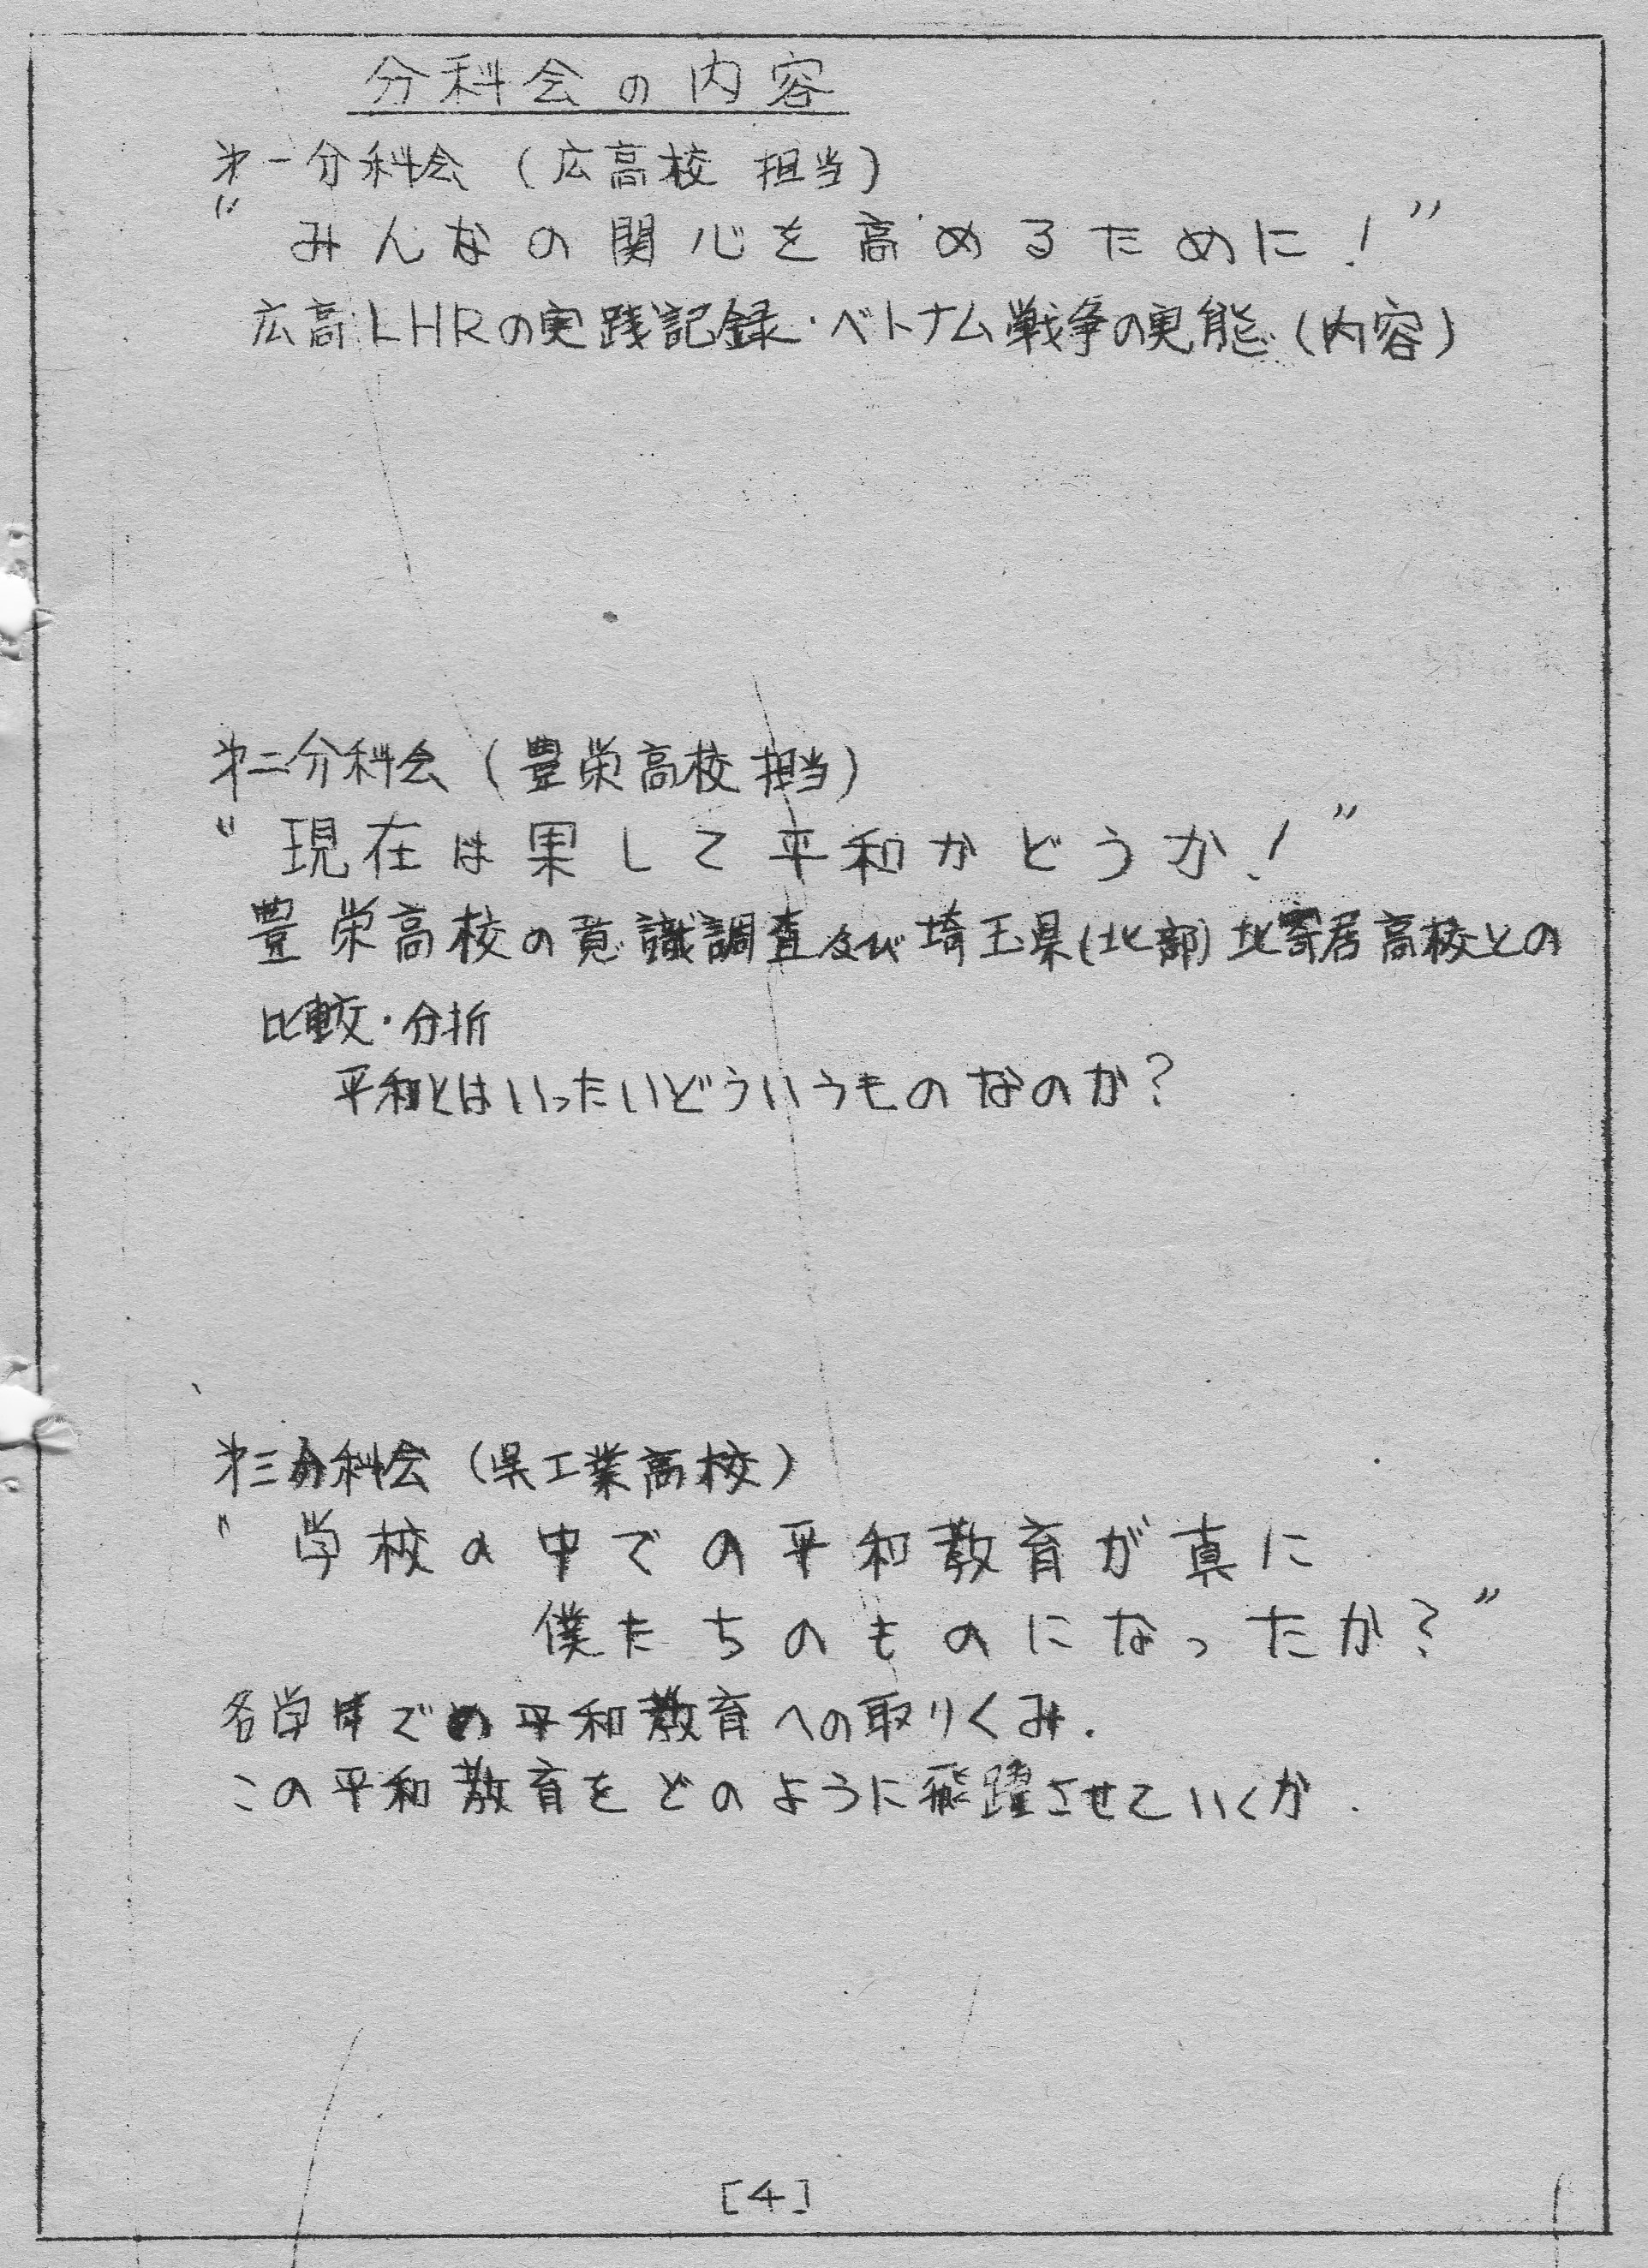 分科会の内容
第一分科会（広高校 担当）
"みんなの関心を高めるために！"
広高LHRの実践記録・ベトナム戦争の実態（内容）
第二分科会（豊栄高校担当）
"現在は果して平和かどうか！"
豊栄高校の意識調査及び埼玉県(北部)北寄居高校との
比較・分折
平和とはいったいどういうものなのか？
第三分科会（県工業高校）
"学校の中での平和教育が真に
僕たちのものになったか？"
各学年での平和教育への取りくみ.
この平和教育をどのように飛躍させていくか.
[4]